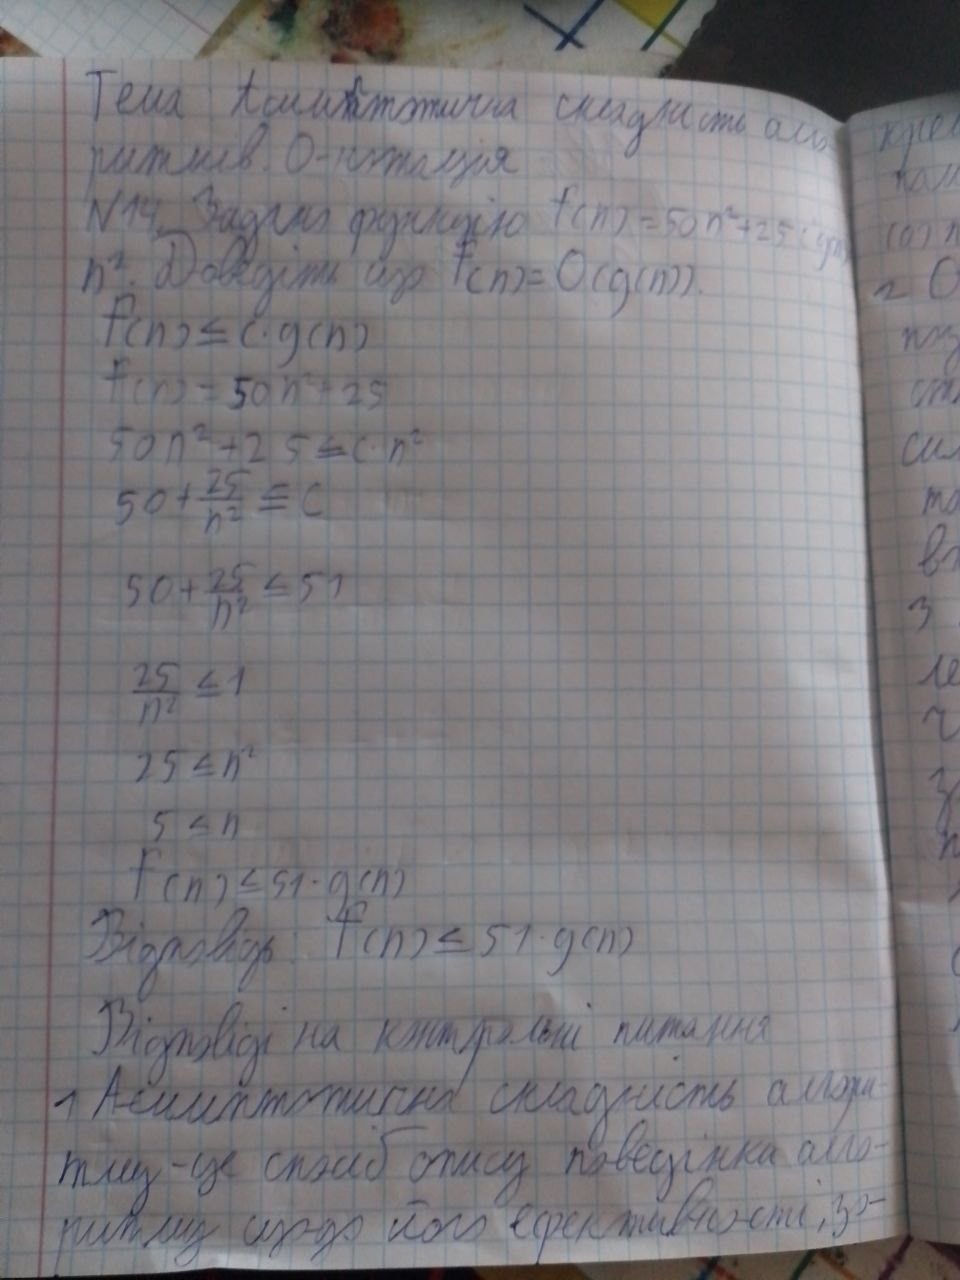 Тема Асимптотична складність алго-
ритмів. О-нотація
N14. Задано функцію f(n)=50n²+25 i g(n)
n². Доведіть що f(n)=O(g(n)).
f(n)≤c·g(n)
f(n)=50n²+25
50n²+25≤c·n²
50+25/n²≤c
50+25/n²≤51
25/n²≤1
25≤n²
5≤n
f(n)≤51·g(n)
Відповідь: f(n)≤51·g(n)
Відповіді на контрольні питання
1 Асимптотична складність алгори-
тму-це спосіб опису поведінка алго-
ритму щодо його ефективності, зо-
2 О
3